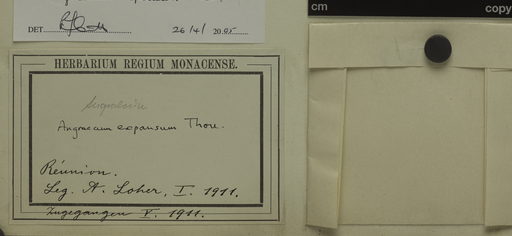 DET. 26/4/ 2005
cm
copy
HERBARIUM REGIUM MONACENSE.
Angraecum expansum Thou.
Réunion.
Leg. A. Loher, I. 1911.
Zugegangen V. 1911.